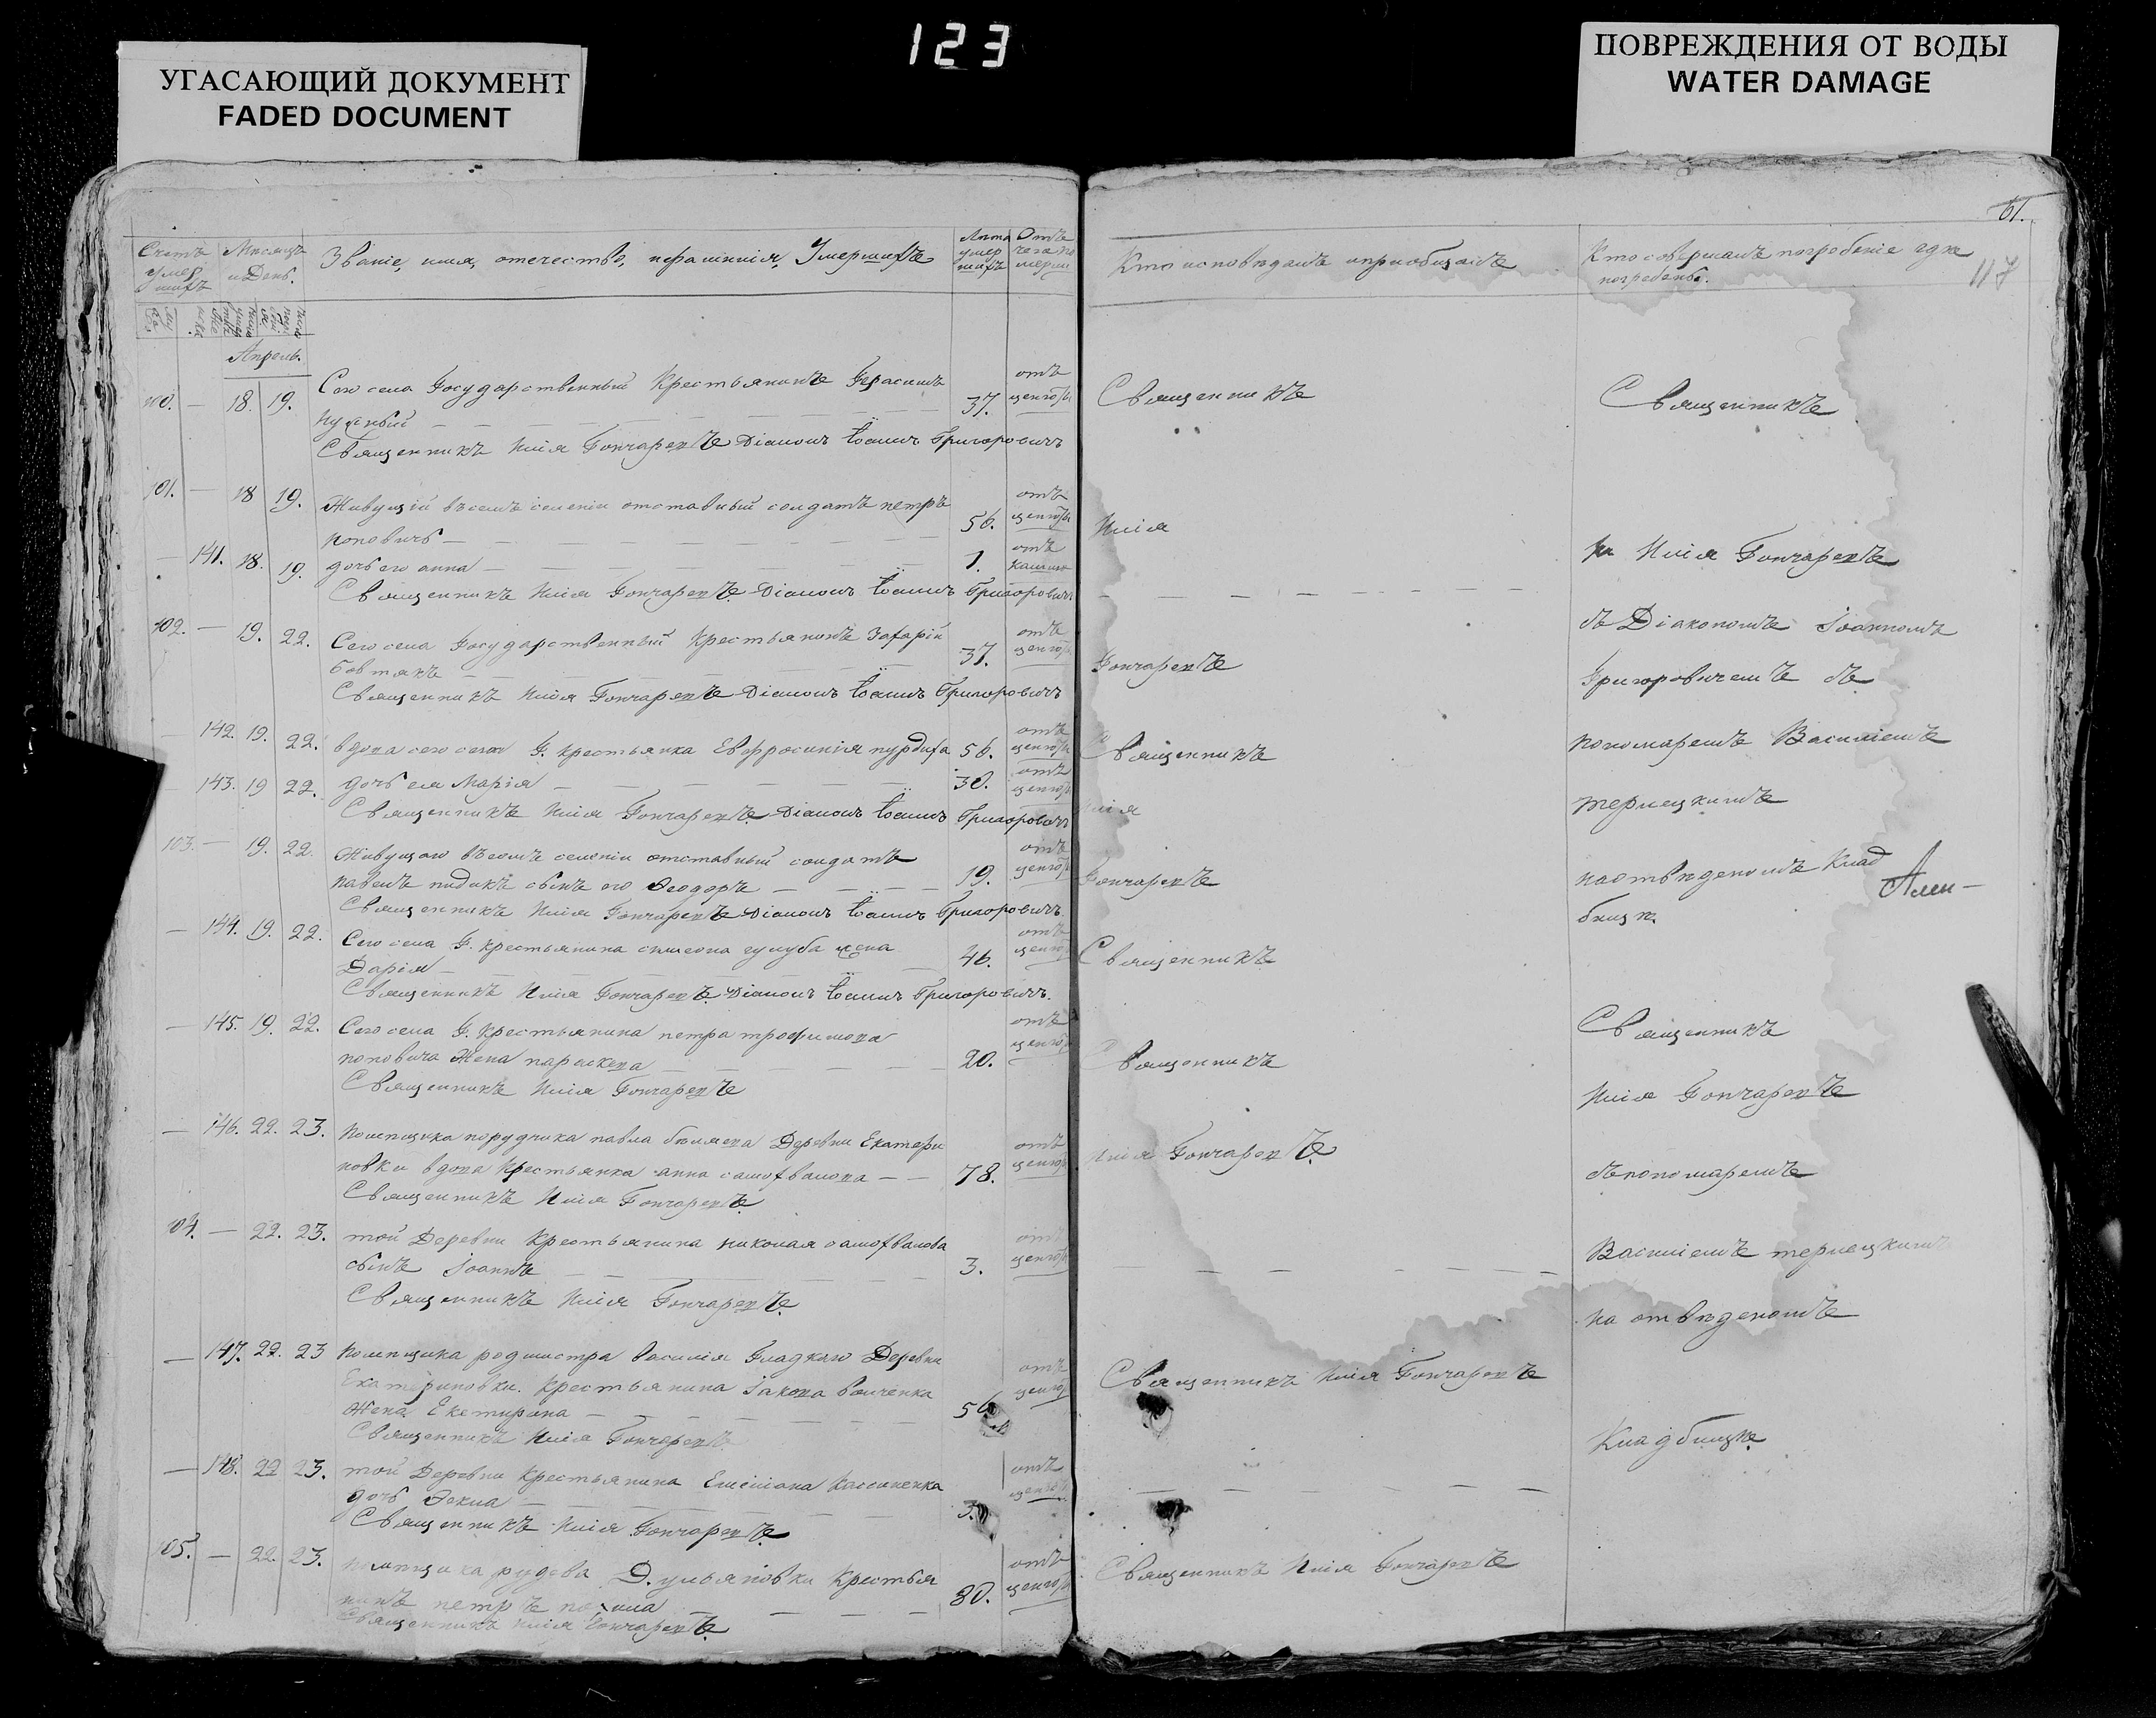 123
УГАСАЮЩИЙ ДОКУМЕНТ
FADED DOCUMENT
ПОВРЕЖДЕНИЯ ОТ ВОДЫ
WATER DAMAGE
61.
117
Счетъ умершихъ
Мѣсяцъ и День.
Званіе, имя, отечество, и фамилія, Умершихъ
Лѣта умершихъ
Отъ чего померли
Кто исповѣдалъ и пріобщалъ
Кто совершалъ погребеніе и гдѣ
погребены.
Апрель.
100. — 18. 19. Сего села Государственный Крестьянинъ Герасимъ
37. отъ
Священникъ Илія Гончаревъ Діаконъ Іоаннъ Григоровичъ
101. — 18 19. Живущій въ семъ селеніи отставный солдатъ петръ
поповичъ — 56. отъ
— 141. 18. 19. дочь его анна — 1. отъ кашлю
Священникъ Илія Гончаревъ Діаконъ Іоаннъ Григоровичъ
102. — 19. 22. Сего села Государственный Крестьянинъ Захарій
Бовтякъ 37. отъ
Священникъ Илія Гончаревъ Діаконъ Іоаннъ Григоровичъ
— 142. 19. 22. вдова сего села Г. крестьянка Евфросинія 56. отъ
— 143. 19 22. дочь ея Марія — 30. отъ
Священникъ Илія Гончаревъ Діаконъ Іоаннъ Григоровичъ
103. — 19. 22. Живущаго въ семъ селеніи отставный солдатъ
павелъ сынъ его Ѳеодоръ — 19. отъ
Священникъ Илія Гончаревъ Діаконъ Іоаннъ Григоровичъ
— 144. 19. 22. Сего села Г. крестьянина симеона жена
Дарія — 46. отъ
Священникъ Илія Гончаревъ Діаконъ Іоаннъ Григоровичъ.
— 145. 19. 22. Сего села Г. Крестьянина петра трофимова
поповича Жена параскева — 20. отъ
Священникъ Илія Гончаревъ
— 146. 22. 23. помещика порудчика павла Деревни Екатери
новки вдова Крестьянка анна самохвалова — 78. отъ
Священникъ Илія Гончаревъ
104. — 22. 23. той Деревни Крестьянина николая самохвалова
сынъ Іоаннъ — 3. отъ
Священникъ Илія Гончаревъ
— 147. 22. 23 помещика родмистра василія Гладкаго Деревни
Екатериновки. Крестьянина Іакова
Жена Екатирина — отъ
Священникъ Илія Гончаревъ
— 148. 22 23. той Деревни Крестьянина Емиліана
дочь — 3. отъ
Священникъ Илія Гончаревъ
105. — 22. 23. помещика Д. ульяновки Крестья
нинъ петръ 80. отъ
Священникъ Илія Гончаревъ
Священникъ
Илія
Гончаревъ
Священникъ
Илія
Гончаревъ
Священникъ
Священникъ
Илія Гончаревъ
Священникъ Илія Гончаревъ
Священникъ Илія Гончаревъ
Священникъ
Илія Гончаревъ
съ Діакономъ Іоанномъ
Григоровичемъ съ
пономаремъ Василіемъ
терлецкимъ
на отвѣденомъКлад
бищѣ.
Священникъ
Илія Гончаревъ
съ пономаремъ
Василіемъ терлецкимъ
на отвѣденомъ
Кладбищѣ